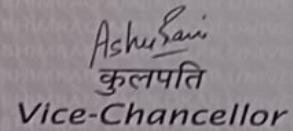 Ashu Rani
कुलपति
Vice-Chancellor